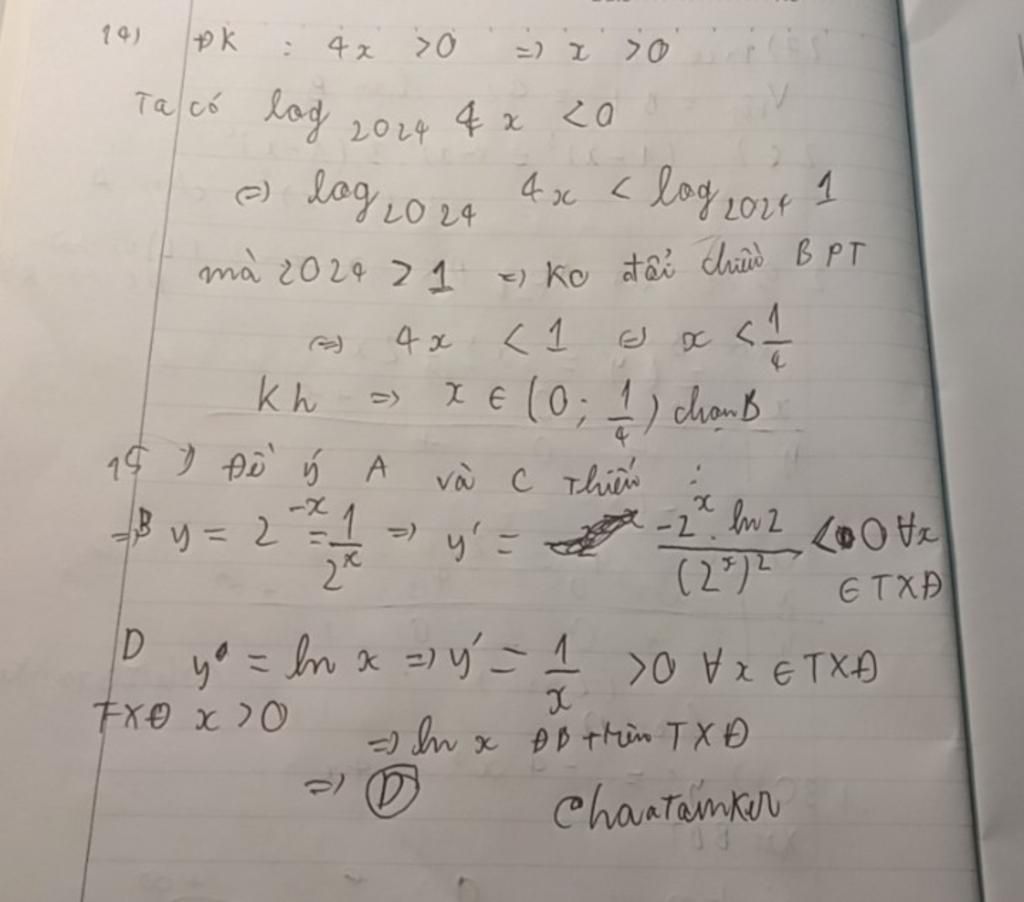 14) ĐK : 4x > 0 => x > 0
Ta có log₂₀₂₄ 4x < 0
<=> log₂₀₂₄ 4x < log₂₀₂₄ 1
mà 2024 > 1 => Ko đổi chiều BPT
<=> 4x < 1 <=> x < 1/4
kh => x ∈ (0; 1/4) chọn B
15) Để ý A và C thiếu :
=> B y = 2^-x = 1/2^x => y' = -2^x. ln2/(2^x)^2 < 0 ∀x
∈ TXĐ
D y = ln x => y' = 1/x > 0 ∀x ∈ TXĐ
TXĐ x > 0
=> ln x ĐB trên TXĐ
=> D